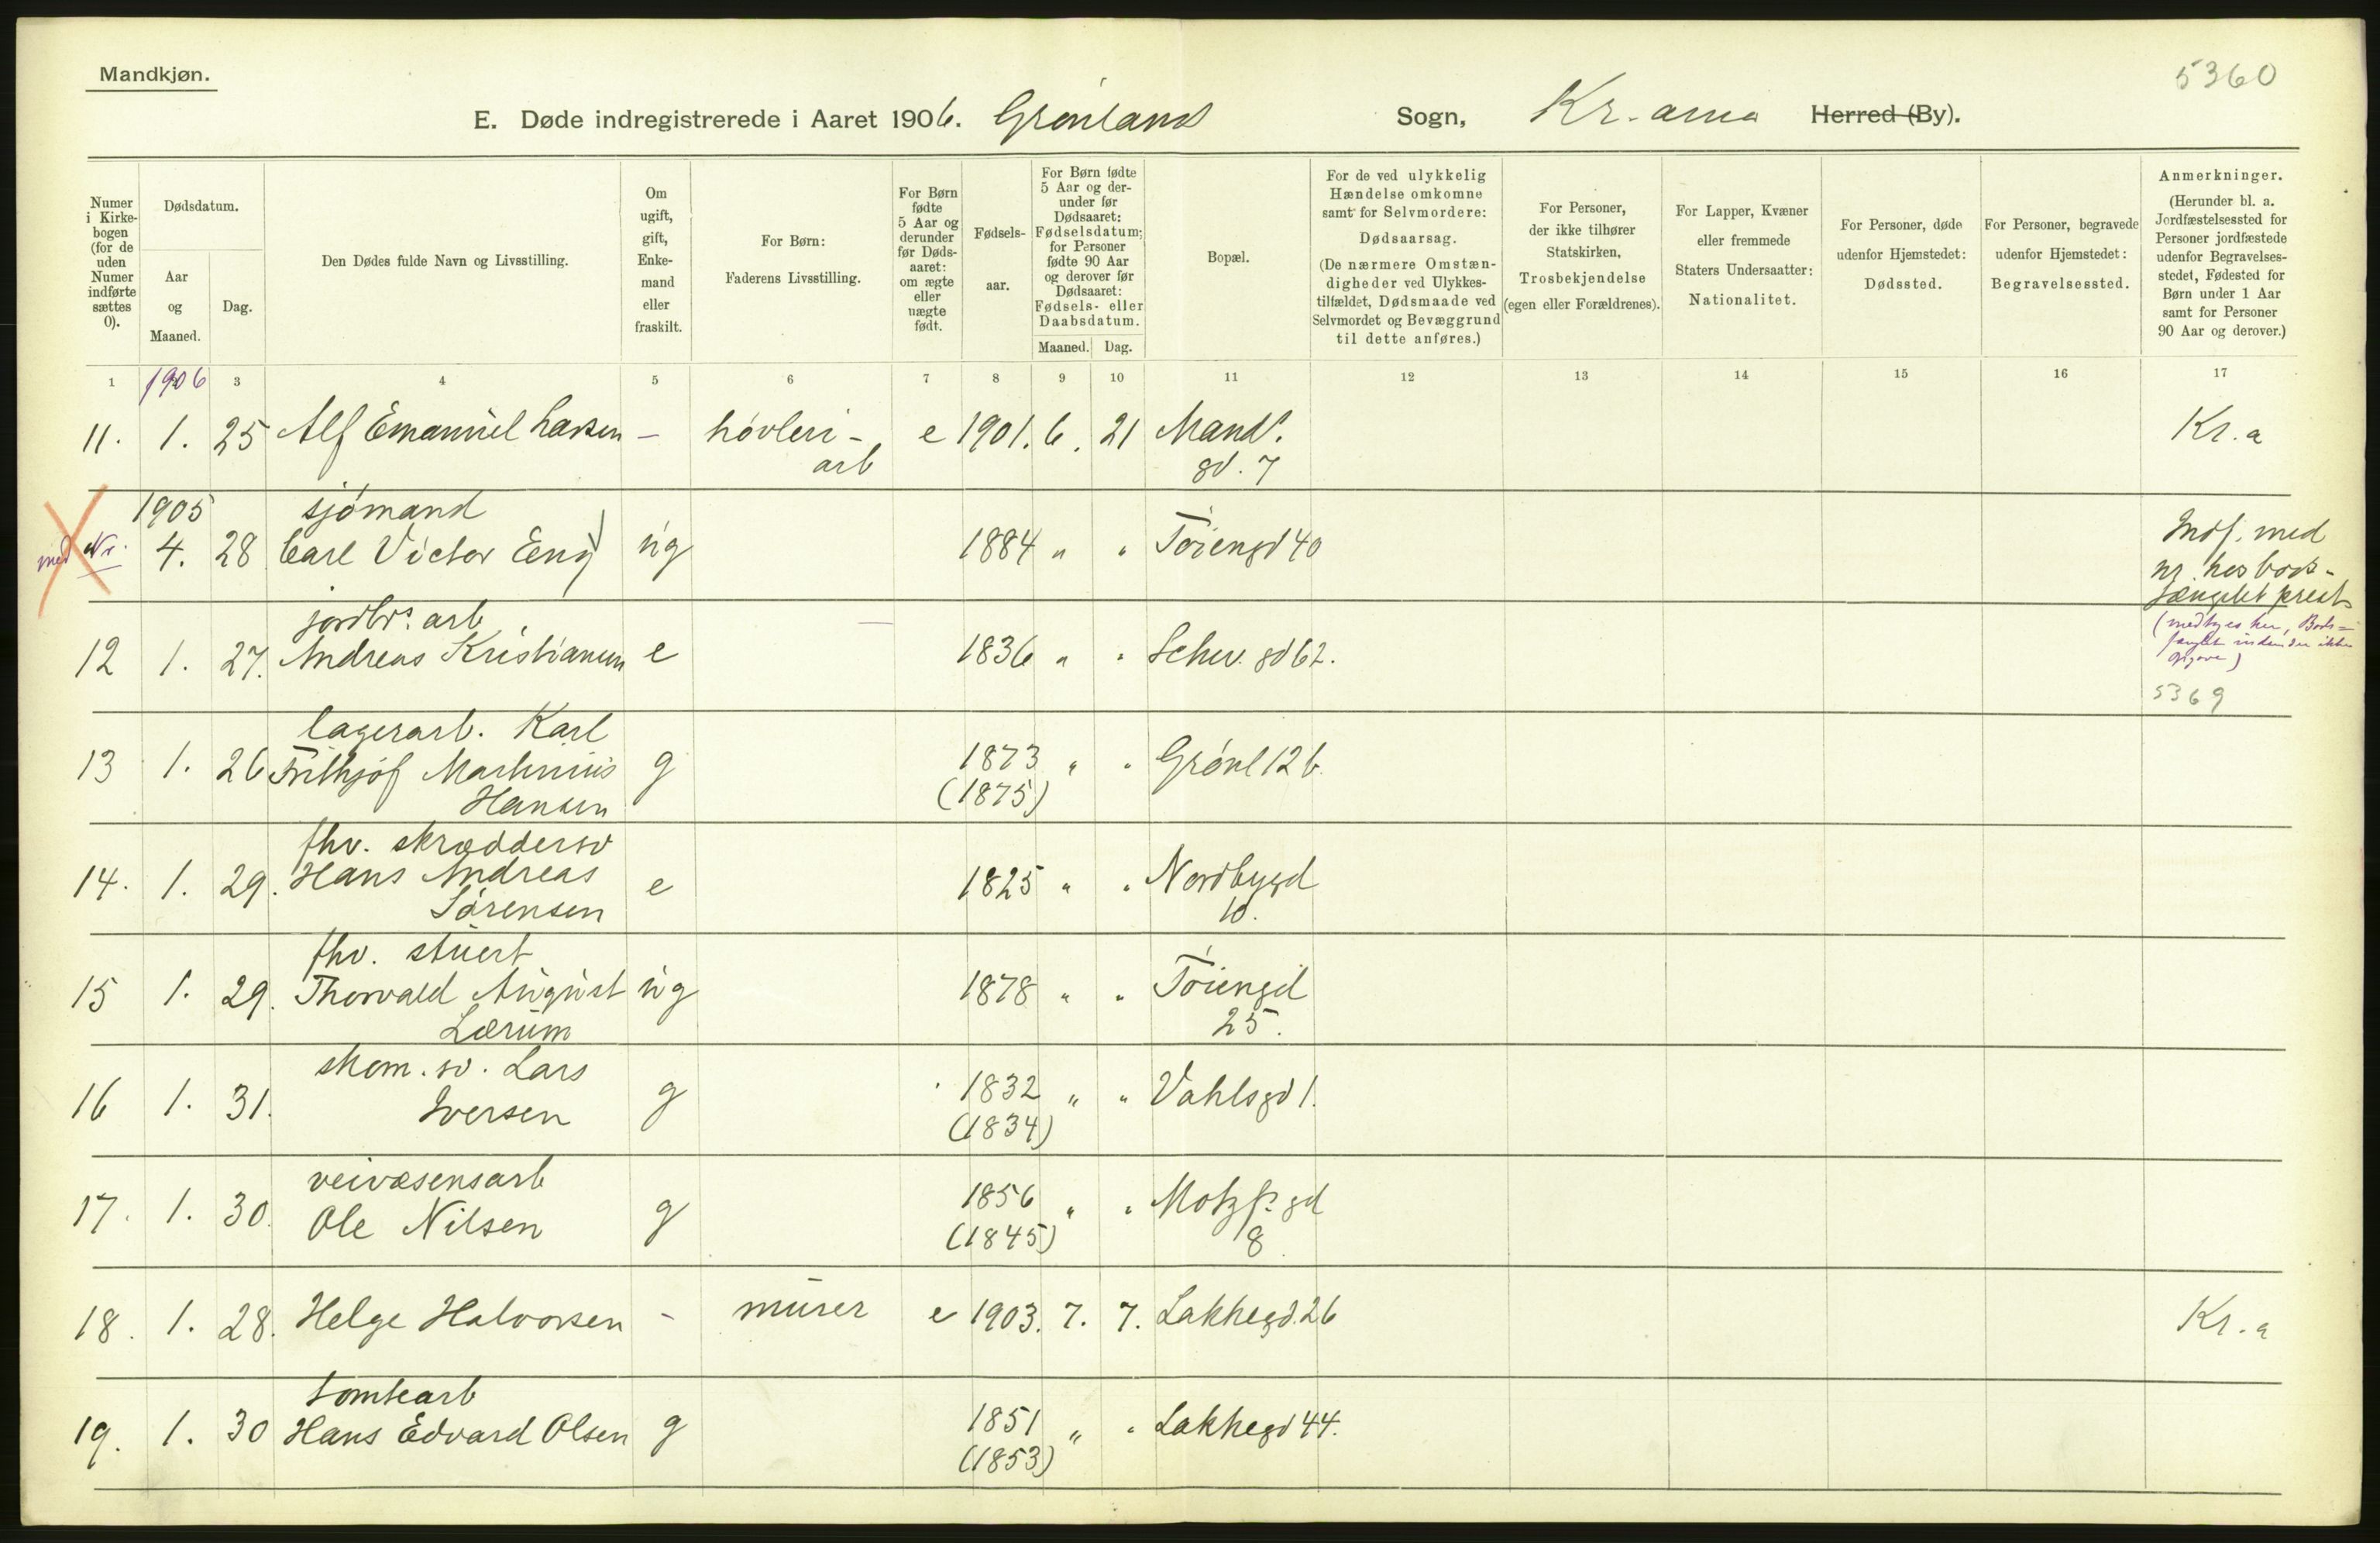 Mandkjøn.
5360
E. Døde indregistrerede i Aaret 1906. Grønland Sogn, Kr.ania Herred (By).
Numer i Kirkebogen (for de uden Numer indførte sættes 0).
Dødsdatum.
Aar og Maaned.
Dag.
Den Dødes fulde Navn og Livsstilling.
Om ugift, gift, Enkemand eller fraskilt.
For Børn: Faderens Livsstilling.
For Børn fødte 5 Aar og derunder før Dødsaaret: om ægte eller uægte født.
Fødselsaar.
For Børn fødte 5 Aar og derunder før Dødsaaret: Fødselsdatum; for Personer fødte 90 Aar og derover før Dødsaaret: Fødsels- eller Daabsdatum.
Maaned. Dag.
Bopæl.
For de ved ulykkelig Hændelse omkomne samt for Selvmordere: Dødsaarsag. (De nærmere Omstændigheder ved Ulykkestilfældet, Dødsmaade ved Selvmordet og Bevæggrund til dette anføres.)
For Personer, der ikke tilhører Statskirken, Trosbekjendelse (egen eller Forældrenes).
For Lapper, Kvæner eller fremmede Staters Undersaatter: Nationalitet.
For Personer, døde udenfor Hjemstedet: Dødssted.
For Personer, begravede udenfor Hjemstedet: Begravelsessted.
Anmerkninger. (Herunder bl. a. Jordfæstelsessted for Personer jordfæstede udenfor Begravelsesstedet, Fødested for Børn under 1 Aar samt for Personer 90 Aar og derover.)
1 1906 3 4 5 6 7 8 9 10 11 12 13 14 15 16 17
11. 1. 25 Alf Emanuel Larsen - høvleri- e 1901. 6. 21 Mands. Kr.a
arb gd. 7
1905 sjømand
med Nr. 4. 28 Carl Victor Eng ug 1884 " " Tøiengd 40 Indf. med
nr. hos bods-
fænglet prest
jordbr. arb (medtages her, Bods-
12 1. 27. Andreas Kristiansen e 1836 " " Schw. gd 62. fænglet inden der ikke
opgave)
5369
lagerarb. Karl
13 1. 26 Frithjof Martinius g 1873 " " Grønl 12 b.
Hansen (1875)
fhv. skræddersv
14. 1. 29. Hans Andreas e 1825 " " Nordbygd
Sørensen 10.
fhv. stuert
15 1. 29. Thorvald August ug 1878 " " Tøiengd
Lærum 25.
skom. sv. Lars
16 1. 31. Iversen g 1832 " " Vahlsgd 1.
(1834)
veivæsensarb
17. 1. 30. Ole Nilsen g 1856 " " Motzf. gd
(1845) 8.
18. 1. 28. Helge Halvorsen - murer e 1903. 7. 7. Lakkegd. 26 Kr.a
tomtearb
19. 1. 30 Hans Edvard Olsen g 1851 " " Lakkegd 44.
(1853)